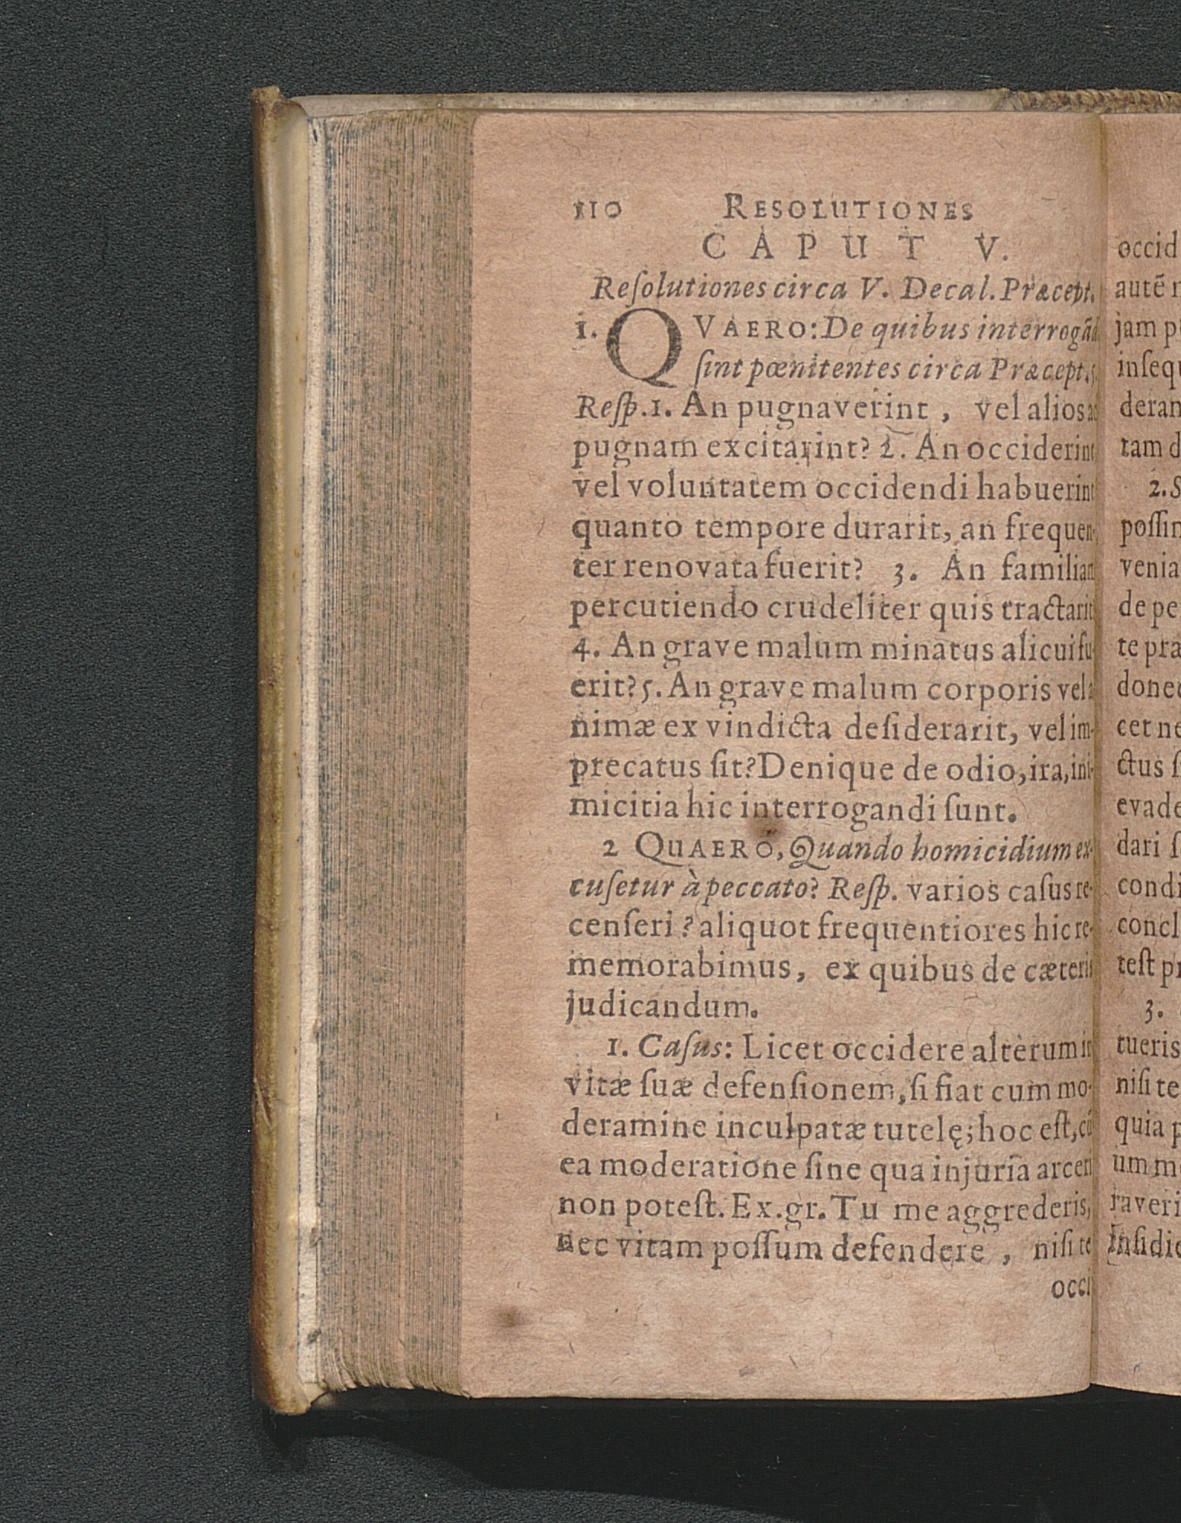 110 RESOLUTIONES
CAPUT V.
Reſolutiones circa V. Decal. Præcept.
1. QVAERO: De quibus interrogãd
ſint pœnitentes circa Præcept. 5.
Reſp. 1. An pugnaverint, vel alios
pugnam excitarint? 2. An occiderint
vel voluntatem occidendi habuerint
quanto tempore durarit, an frequen-
ter renovata fuerit? 3. An familiam
percutiendo crudeliter quis tractarit
4. An grave malum minatus alicui fu-
erit? 5. An grave malum corporis vel a
nimæ ex vindicta deſiderarit, vel im-
precatus ſit? Denique de odio, ira, ini-
micitia hic interrogandi ſunt.
2 QUAERO, Quando homicidium ex-
cuſetur à peccato? Reſp. varios caſus re-
cenſeri? aliquot frequentiores hic re-
memorabimus, ex quibus de cæteris
judicandum.
1. Caſus: Licet occidere alterum in
vitæ ſuæ defenſionem, ſi fiat cum mo-
deramine inculpatæ tutelę; hoc eſt, cũ
ea moderatione ſine qua injuria arceri
non poteſt. Ex. gr. Tu me aggrederis,
nec vitam poſſum defendere, niſi te
occi
occid
autẽ
jam p
inſequ
deran
tam d
2. S
poſſin
venia
de pe
te pra
donec
cet ne
ctus ſ
evade
dari ſ
condi
concl
teſt pr
3.
tueris
niſi te
quia p
um m
raveri
Inſidi